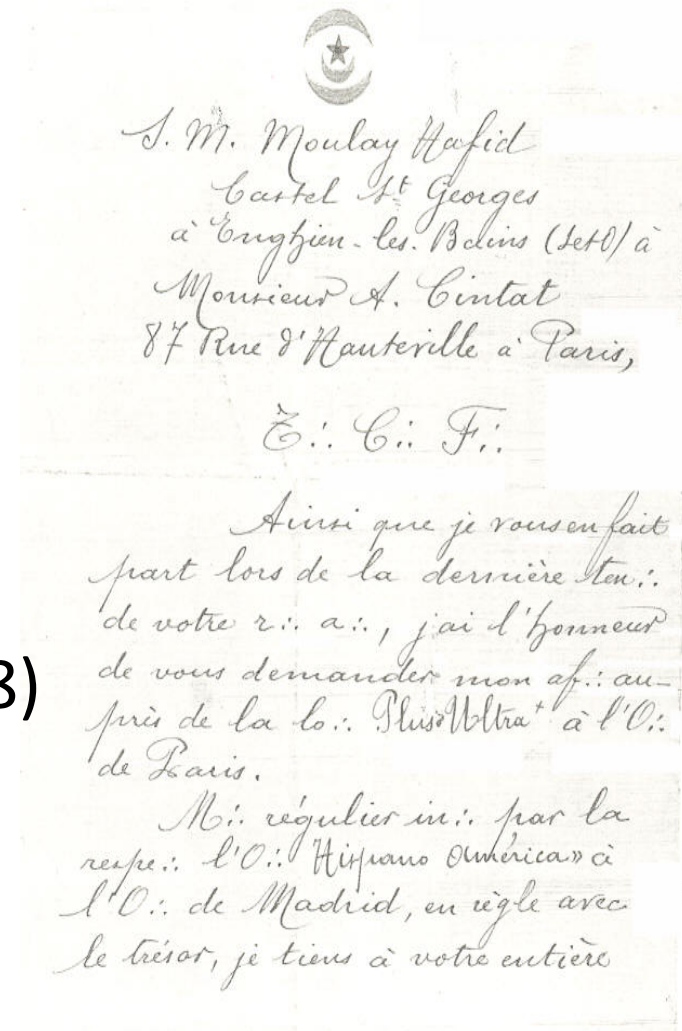 S. M. Moulay Hafid
Castel St Georges
à Enghien-les-Bains (S et O) à
Monsieur A. Cintat
87 Rue d'Hauteville à Paris,
T∴ C∴ F∴
Ainsi que je vous en fait
part lors de la dernière ten∴
de votre r∴ a∴, j'ai l'honneur
8)
de vous demander mon af∴ au-
près de la lo∴ Plus Ultra à l'O∴
de Paris.
M∴ régulier in∴ par la
respe∴ l'O∴ Hispano América» à
l'O∴ de Madrid, en règle avec
le trésor, je tiens à votre entière